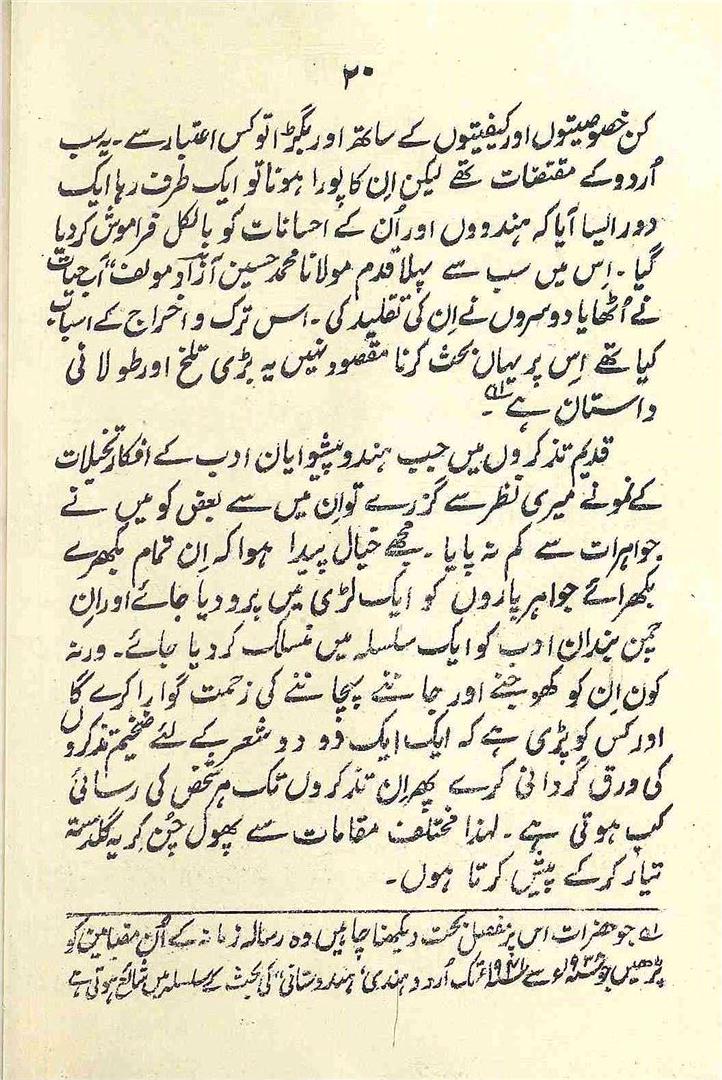 ۲۰
کن خصوصیتوں اور کیفیتوں کے ساتھ اور بگڑا تو کس اعتبار سے ۔ یہ سب
اُردو کے مقتضات تھے لیکن اِن کا پورا ہونا تو ایک طرف رہا ایک
دور ایسا آیا کہ ہندووں اور اُن کے احسانات کو بالکل فراموش کر دیا
گیا ۔ اِس میں سب سے پہلا قدم مولانا محمد حسین آزاد مولف "آب حیات"
نے اُٹھایا دوسروں نے اِن کی تقلید کی ۔ اس ترک و اخراج کے اسباب
کیا تھے اِس پر یہاں بحث کرنا مقصود نہیں یہ بڑی تلخ اور طولانی
داستان ہے ۱؎ ۔
قدیم تذکروں میں جب ہندو پیشوایان ادب کے افکار و تخیلات
کے نمونے میری نظر سے گزرے تو اِن میں سے بعض کو میں نے
جواہرات سے کم نہ پایا ۔ مجھے خیال پیدا ہوا کہ اِن تمام بکھرے
بکھرائے جواہر پاروں کو ایک لڑی میں پرو دیا جائے اور اِن
چمن بندان ادب کو ایک سلسلہ میں منسلک کر دیا جائے ۔ ورنہ
کون اِن کو کھوجنے اور جاننے پہچاننے کی زحمت گوارا کرے گا
اور کس کو پڑی ہے کہ ایک ایک دو دو شعر کے لئے ضخیم تذکروں
کی ورق گردانی کرے پھر اِن تذکروں تک ہر شخص کی رسائی
کب ہوتی ہے ۔ لہذا مختلف مقامات سے پھول چُن کر یہ گلدستہ
تیار کر کے پیش کرتا ہوں ۔
۱؎ جو حضرات اس پر مفصل بحث دیکھنا چاہیں وہ رسالہ زمانہ کے اُن مضامین کو
پڑھیں جو ۱۹۳۸ء سے ۱۹۴۱ء تک اُردو ہندی، ہندوستانی" کی بحث کے سلسلہ میں شائع ہوتی ہے